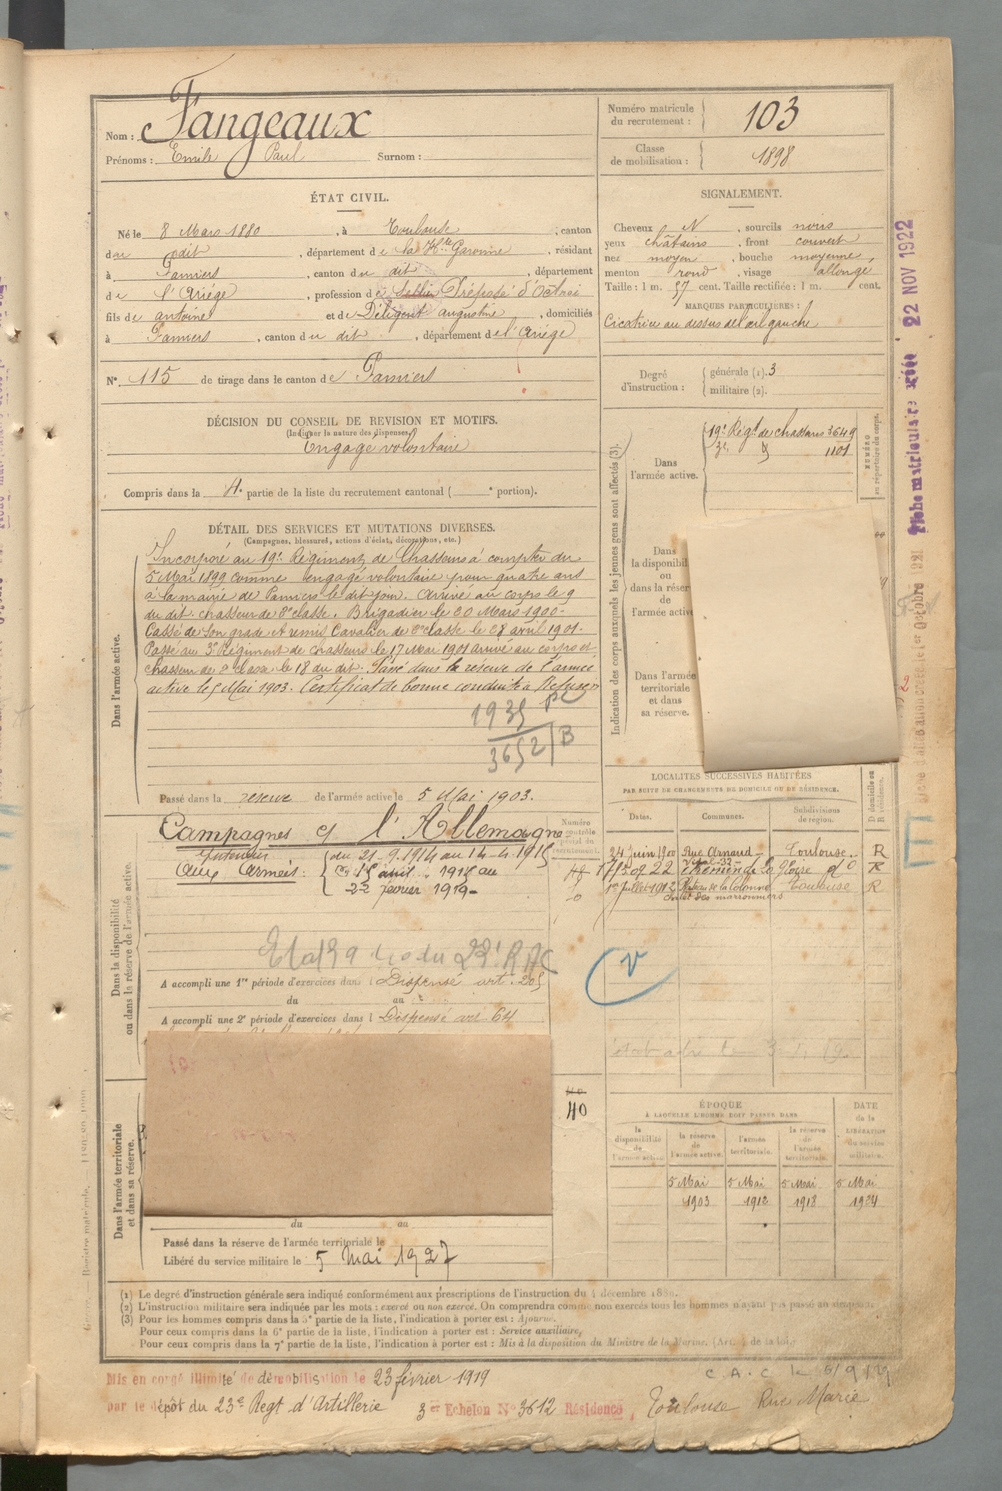 Nom : Fangeaux
Prénoms : Emile Paul Surnom :
Numéro matricule du recrutement : 103
Classe de mobilisation : 1898
ÉTAT CIVIL.
Né le 8 Mars 1880, à Toulouse, canton
du edit, département de la Hte Garonne, résidant
à Pamiers, canton du dit, département
de l'Ariége, profession de Sellier Préposé d'Octroi
fils de antoine et de Déligent augustine, domiciliés
à Pamiers, canton du dit, département de l'Ariége
N° 115 de tirage dans le canton de Pamiers
SIGNALEMENT.
Cheveux N, sourcils noirs
yeux châtains, front couvert
nez moyen, bouche moyenne,
menton rond, visage allongé
Taille : 1 m. 57 cent. Taille rectifiée : 1 m. cent.
MARQUES PARTICULIÈRES :
Cicatrice au dessus de l'œil gauche
Degré d'instruction : générale (1). 3
militaire (2).
DÉCISION DU CONSEIL DE REVISION ET MOTIFS.
(Indiquer la nature des dispenses)
Engagé volontaire
Compris dans la 4e partie de la liste du recrutement cantonal ( e portion).
DÉTAIL DES SERVICES ET MUTATIONS DIVERSES.
(Campagnes, blessures, actions d'éclat, décorations, etc.)
Dans l'armée active.
Incorporé au 19e Régiment de Chasseurs à compter du
5 Mai 1899 comme engagé volontaire pour quatre ans
à la mairie de Pamiers le dit jour. Arrivé au corps le 9
du dit. chasseur de 2e classe. Brigadier le 20 Mars 1900.
Cassé de son grade et remis Cavalier de 2e classe le 28 avril 1901.
Passé au 3e Régiment de chasseurs le 17 Mai 1901 arrivé au corps et
chasseur de 2e classe le 18 du dit. Passé dans la réserve de l'armée
active le 5 Mai 1903. Certificat de bonne conduite Refusé
1935
3652 B
Passé dans la reserve de l'armée active le 5 Mai 1903.
Indication des corps auxquels les jeunes gens sont affectés (3).
Dans l'armée active.
19e Régt de chasseurs 3649
3e d 1101
NUMÉRO au répertoire du corps.
Dans la disponibil ou dans la réser de l'armée activ
Dans l'armée territoriale et dans sa réserve.
Fiche matriculaire créée 22 NOV 1922
Dans la disponibilité ou dans la réserve de l'armée active.
Campagnes C/ l'Allemagne
Intérieur du 21-9-1914 au 14-4-1915
Aux Armées : avril 1915 au
22 février 1919
A accompli une 1re période d'exercices dans l Dispensé art. 205
du au
A accompli une 2e période d'exercices dans l Dispensé art 64
Numéro
40
LOCALITÉS SUCCESSIVES HABITÉES
PAR SUITE DE CHANGEMENTS DE DOMICILE OU DE RÉSIDENCE.
Dates. Communes. Subdivisions de région. D. domicile ou R. résidence.
24 Juin 1900 Rue Arnaud Vidal 32 Toulouse R
R
1er Juillet 1912 Toulouse R
V
ÉPOQUE
À LAQUELLE L'HOMME DOIT PASSER DANS
la disponibilité de l'armée active
la réserve de l'armée active.
l'armée territoriale.
la réserve de l'armée territoriale.
DATE de la LIBÉRATION du service militaire.
5 Mai 5 Mai 5 Mai 5 Mai
1903 1912 1918 1924
Dans l'armée territoriale et dans sa réserve.
du au
Passé dans la réserve de l'armée territoriale le
Libéré du service militaire le 5 Mai 1927
(1) Le degré d'instruction générale sera indiqué conformément aux prescriptions de l'instruction du 4 décembre 1889.
(2) L'instruction militaire sera indiquée par les mots : exercé ou non exercé. On comprendra comme non exercés tous les hommes n'ayant pas passé au régiment.
(3) Pour les hommes compris dans la 5e partie de la liste, l'indication à porter est : Ajourné.
Pour ceux compris dans la 6e partie de la liste, l'indication à porter est : Service auxiliaire,
Pour ceux compris dans la 7e partie de la liste, l'indication à porter est : Mis à la disposition du Ministre de la Marine. (Art. 4 de la loi.)
C.A.C le 6/9/29
Mis en congé illimité de démobilisation le 23 février 1919
par le dépôt du 23e Regt d'Artillerie 3er Echelon N° 3612 Résidence, Toulouse Rue Marie